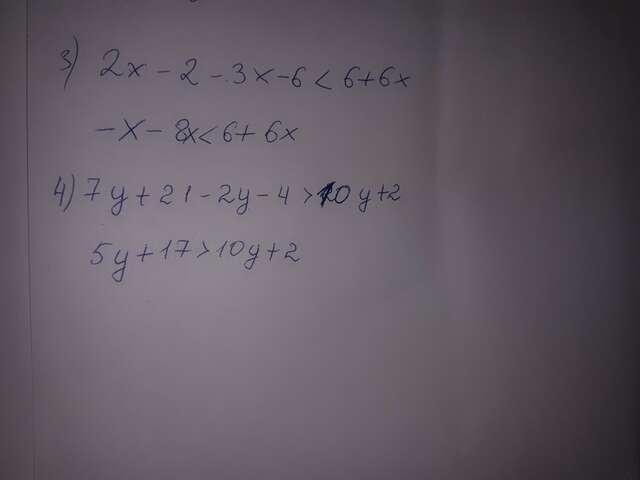 3) 2x - 2 - 3x - 6 < 6 + 6x
-x - 8x < 6 + 6x
4) 7y + 21 - 2y - 4 > 10y + 2
5y + 17 > 10y + 2